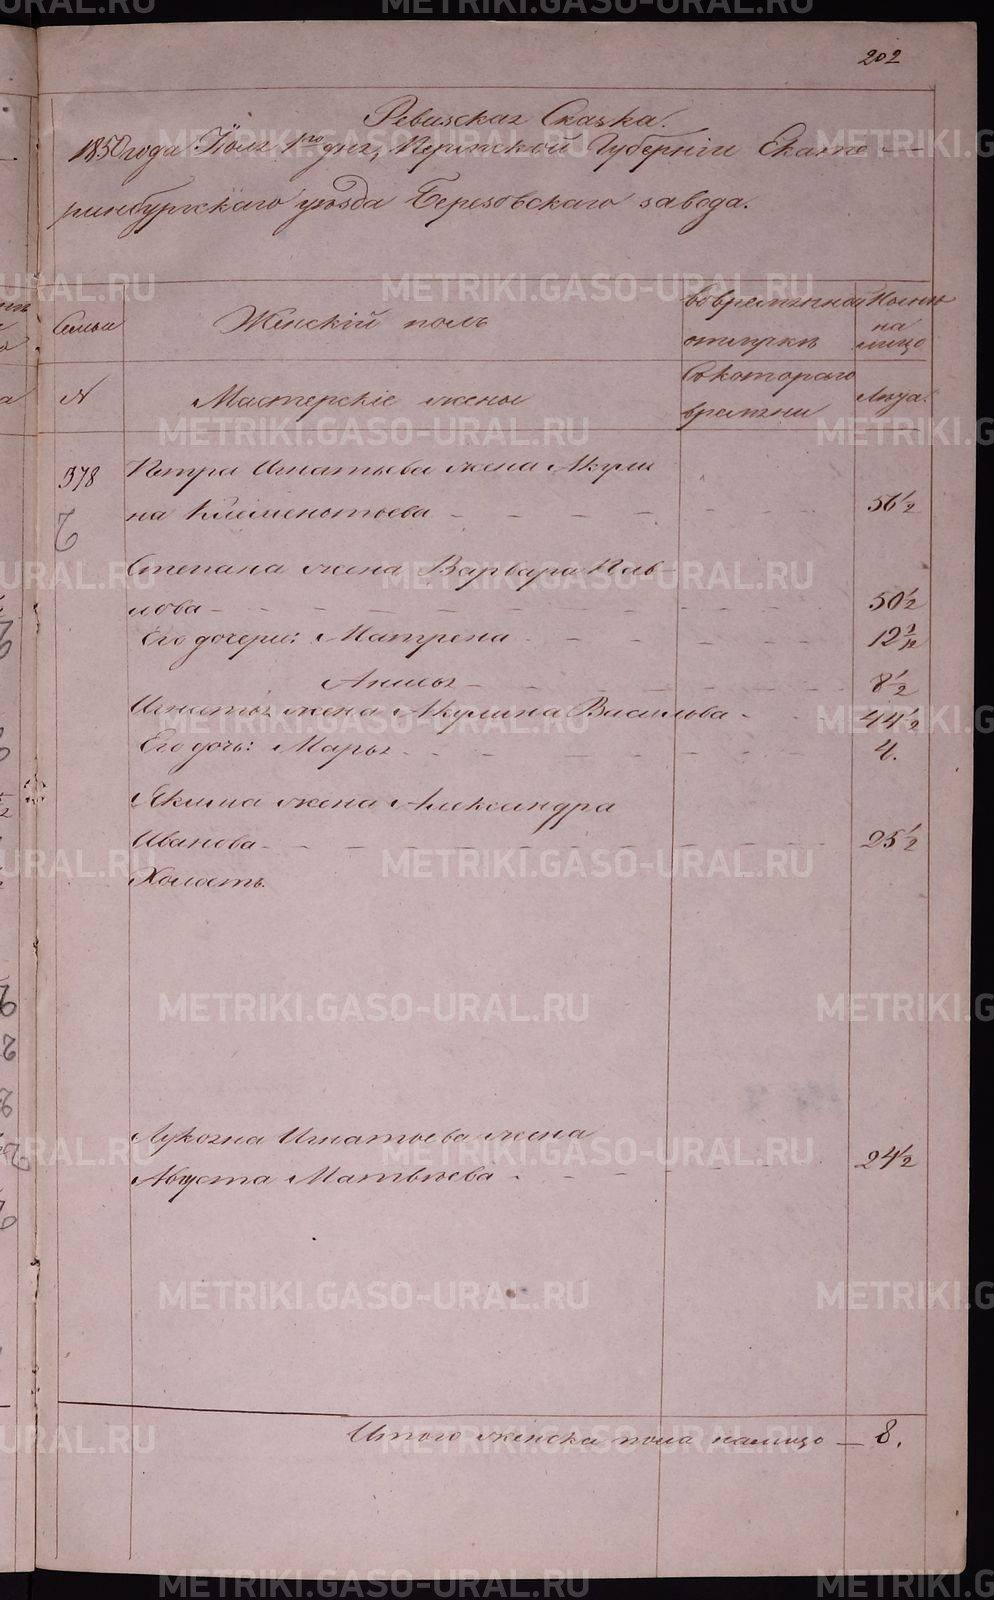 202
Ревизская Сказка.
1850 года Іюля 1го дня, Пермской Губерніи Екате-
ринбургскаго уѣзда Березовскаго завода.
Семьи
Женскій полъ
во временной отлучкѣ
Нынѣ на лицо
N
Мастерскіе жены
Съ котораго времени
Лѣта.
378
Петра Игнатьева жена Акули
на Климентьева 56 1/2
Степана жена Варвара Пав-
лова 50 1/2
Его дочери: Матрена 12
8 1/2
Игнатья жена Акулина Васильева 44 1/2
Его дочь: Марья 4.
Якима жена Александра
Иванова 25 1/2
Холостъ.
Игнатьева жена
Августа Матвѣева 24 1/2
Итого женска пола налицо — 8.
METRIKI.GASO-URAL.RU